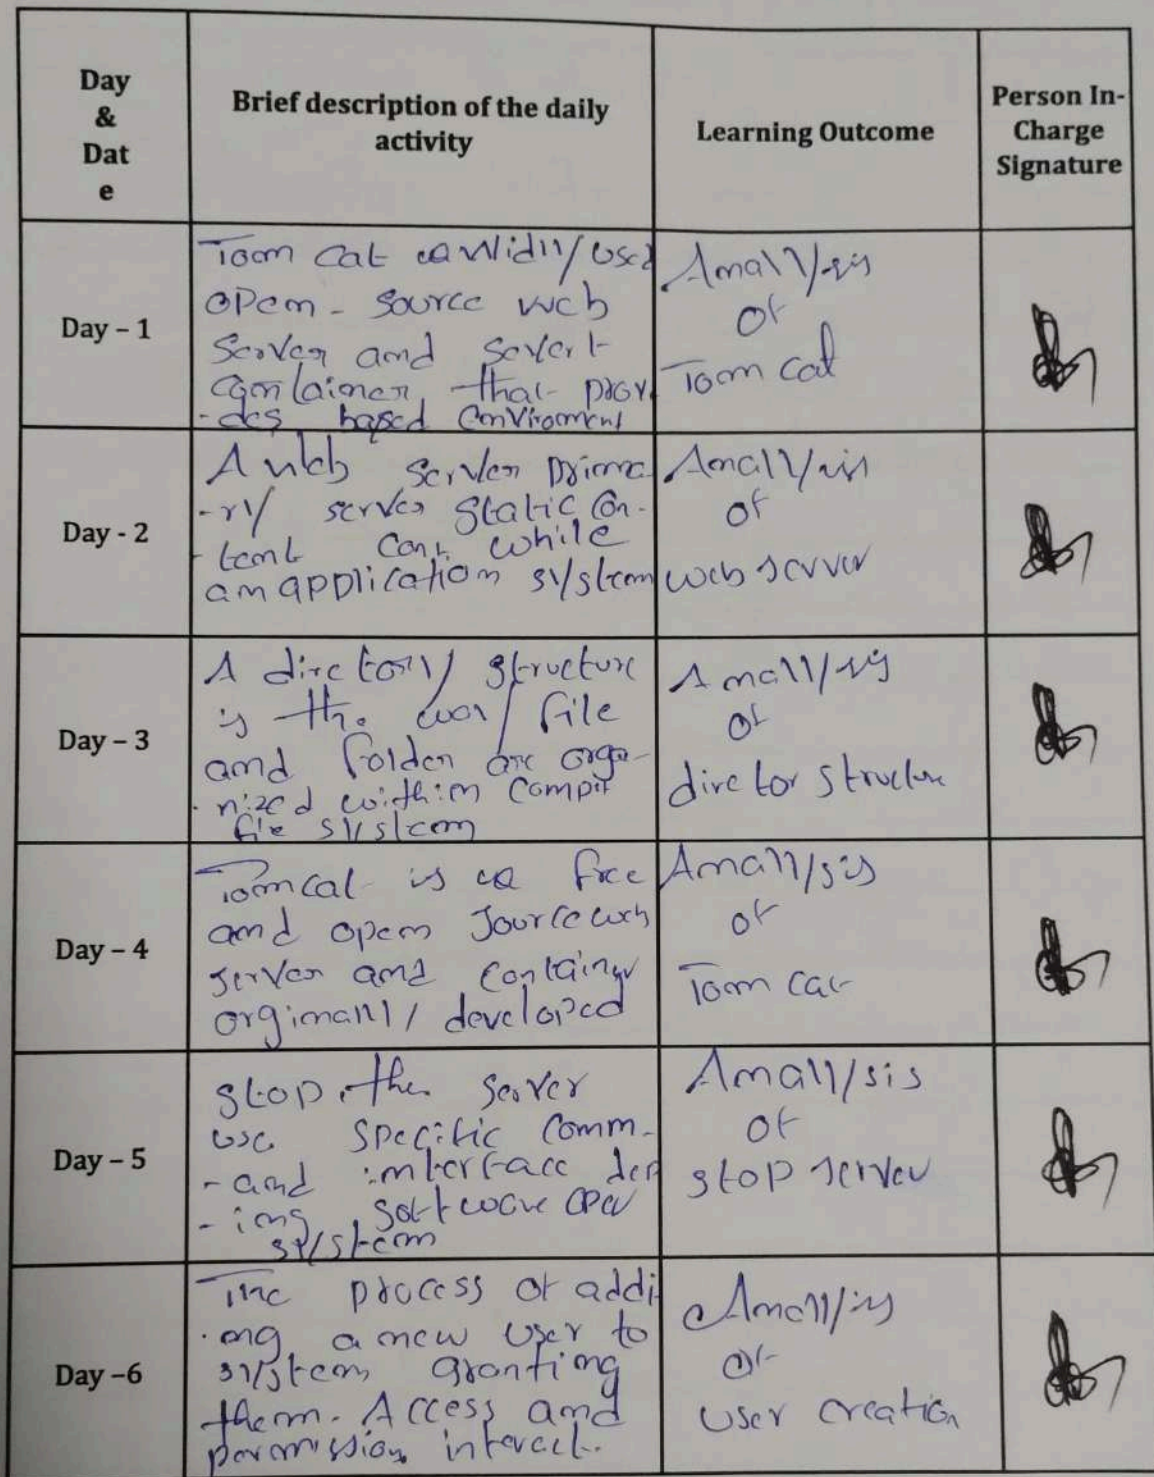 Day
&
Dat
e
Brief description of the daily
activity
Learning Outcome
Person In-
Charge
Signature
Day – 1
Toom cat used
open - source web
Server and
container that prov
- des based Enviroment
Amallysis
of
Toom cat
Day - 2
A web server prima
- ry server static con-
- tent can while
an application system
Amallysis
of
web server
Day – 3
A directory structure
is the way file
and folder are orga-
- nized within
file system
Amallysis
of
director structure
Day – 4
Tomcat is a free
and open source web
server and container
orginally developed
Amallysis
of
Tom cat
Day – 5
stop the server
use specific comm-
- and interface dep
- ing software
system
Amallysis
of
stop server
Day –6
The process of addi
- ng a new user to
system granting
them. Access and
permission
Amallysis
of
user creation